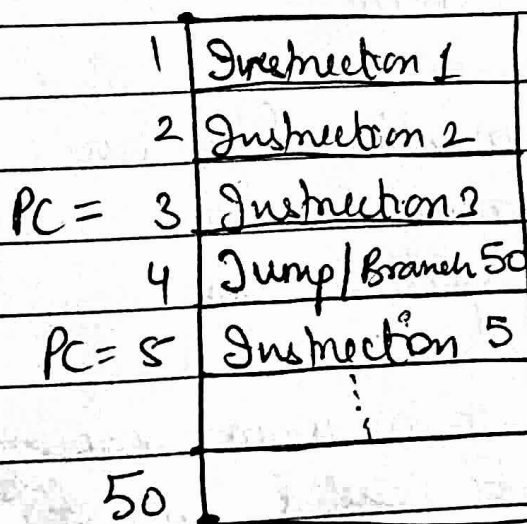 1 Instruction 1
2 Instruction 2
PC = 3 Instruction 3
4 Jump/Branch 50
PC = 5 Instruction 5
50